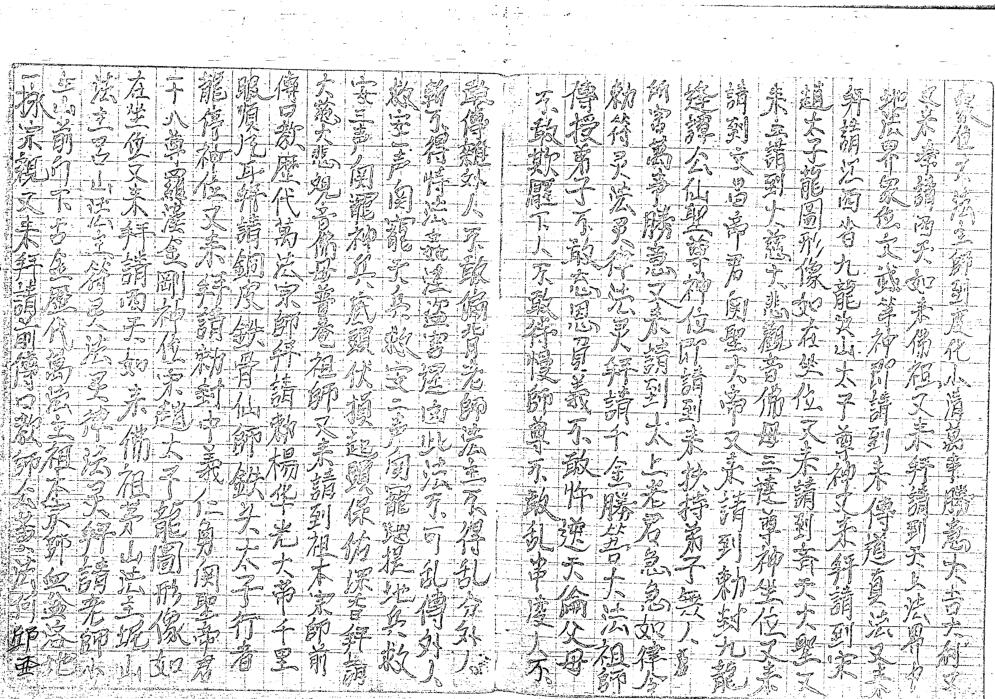 衆百位大法主師到度化小清萬事勝意大吉大利又
來奉請西天如來佛祖又來拜請到天上法界夕
地法界眾位文武筆神即請到來傳道真法又來
拜請江西省九龍汝山太子尊神又來拜請到宋
趙太子龍圖形像如在坐位又來請到齊天大聖又
來立請到大慈大悲觀音佛母三達尊神坐位又來
請到文昌帝君関聖大帝又來請到勅封九龍
譚公仙聖尊神位即請到來扶持弟子無人
所害萬事勝意又來請到太上老君急急如律令
勅符灵法灵律法灵拜請千金勝笞大法祖師
傳授弟子不敢忘恩負義不敢忤逆天倫父母
不敢欺罷下人不敢待慢師尊不敢乱串度人不
敢傳雜外人不敢偏背老師法主不得乱分外人
斬可得恃法姦淫盜害還囬此法不可乱傳外人
救定一声関龍天兵救定二声関龍地提地兵救
定三声関龍神兵底頭伏損起頭保佑深香拜請
大慈大悲观音佛母普菴祖師又來請到祖本宗師前
傳口教歷代萬法宗師拜請勅楊华光大帝千里
眼順虎耳拜請銅皮鉄骨仙師鉄头太子行者
龍停神位又來拜請勅封中義仁勇関聖帝君
一十八尊羅漢金剛神位宋趙太子龍圖形像如
在坐位又來拜請西天如來佛祖茅山法主坭山
法主吕山法主符灵法灵律法灵拜請老師公
山前印下古金歷代萬法主祖本宗師血盆落地
一揼宗親又來拜請前傳口教師人公黃法何邱亜